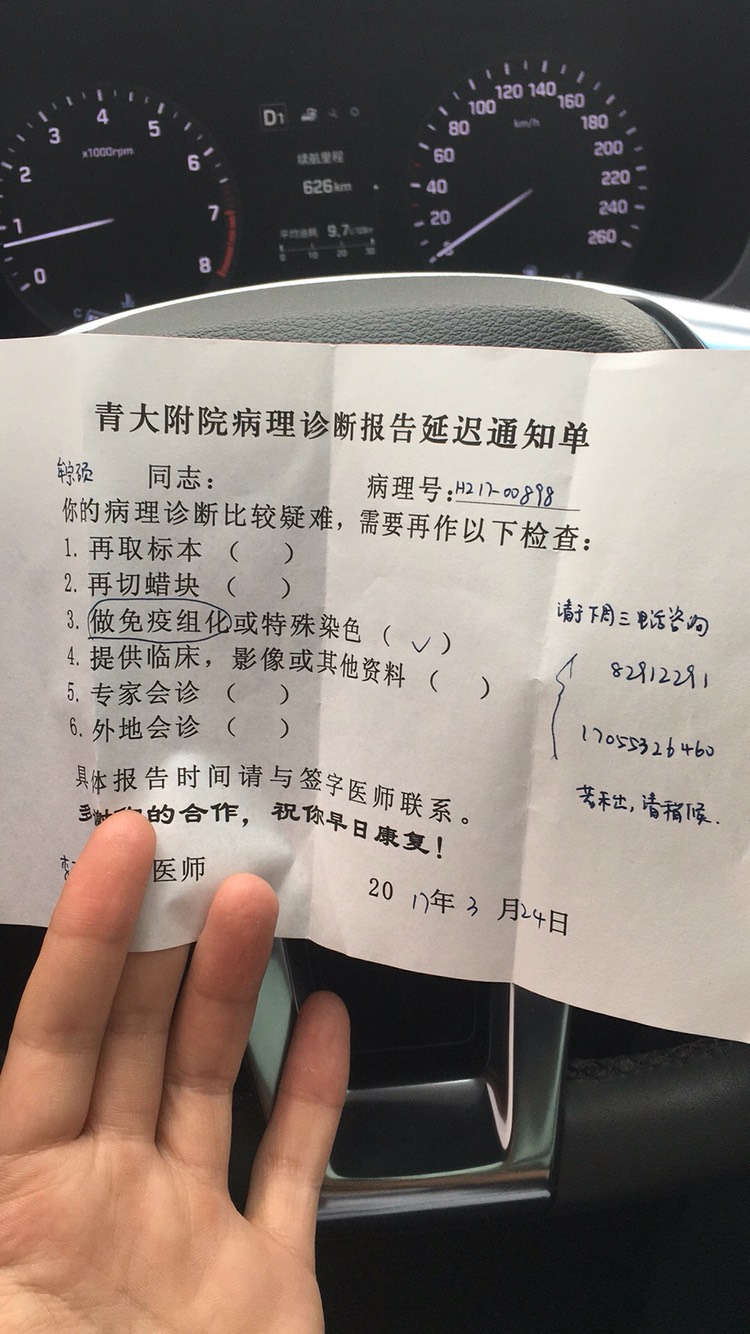 0 1 2 3 4 5 6 7 8
x1000rpm
D1
续航里程
626km
平均油耗 9.7
0 10 20 30
20 40 60 80 100 120 140 160 180 200 220 240 260
km/h
C
青大附院病理诊断报告延迟通知单
同志： 病理号：HZ17-00898
你的病理诊断比较疑难，需要再作以下检查：
1. 再取标本（ ）
2. 再切蜡块（ ）
3. 做免疫组化或特殊染色（✓）
4. 提供临床，影像或其他资料（ ）
5. 专家会诊（ ）
6. 外地会诊（ ）
具体报告时间请与签字医师联系。
的合作，祝你早日康复！
医师
2017年3月24日
请于下周三电话咨询
82912291
17055326460
若未出，请稍候.